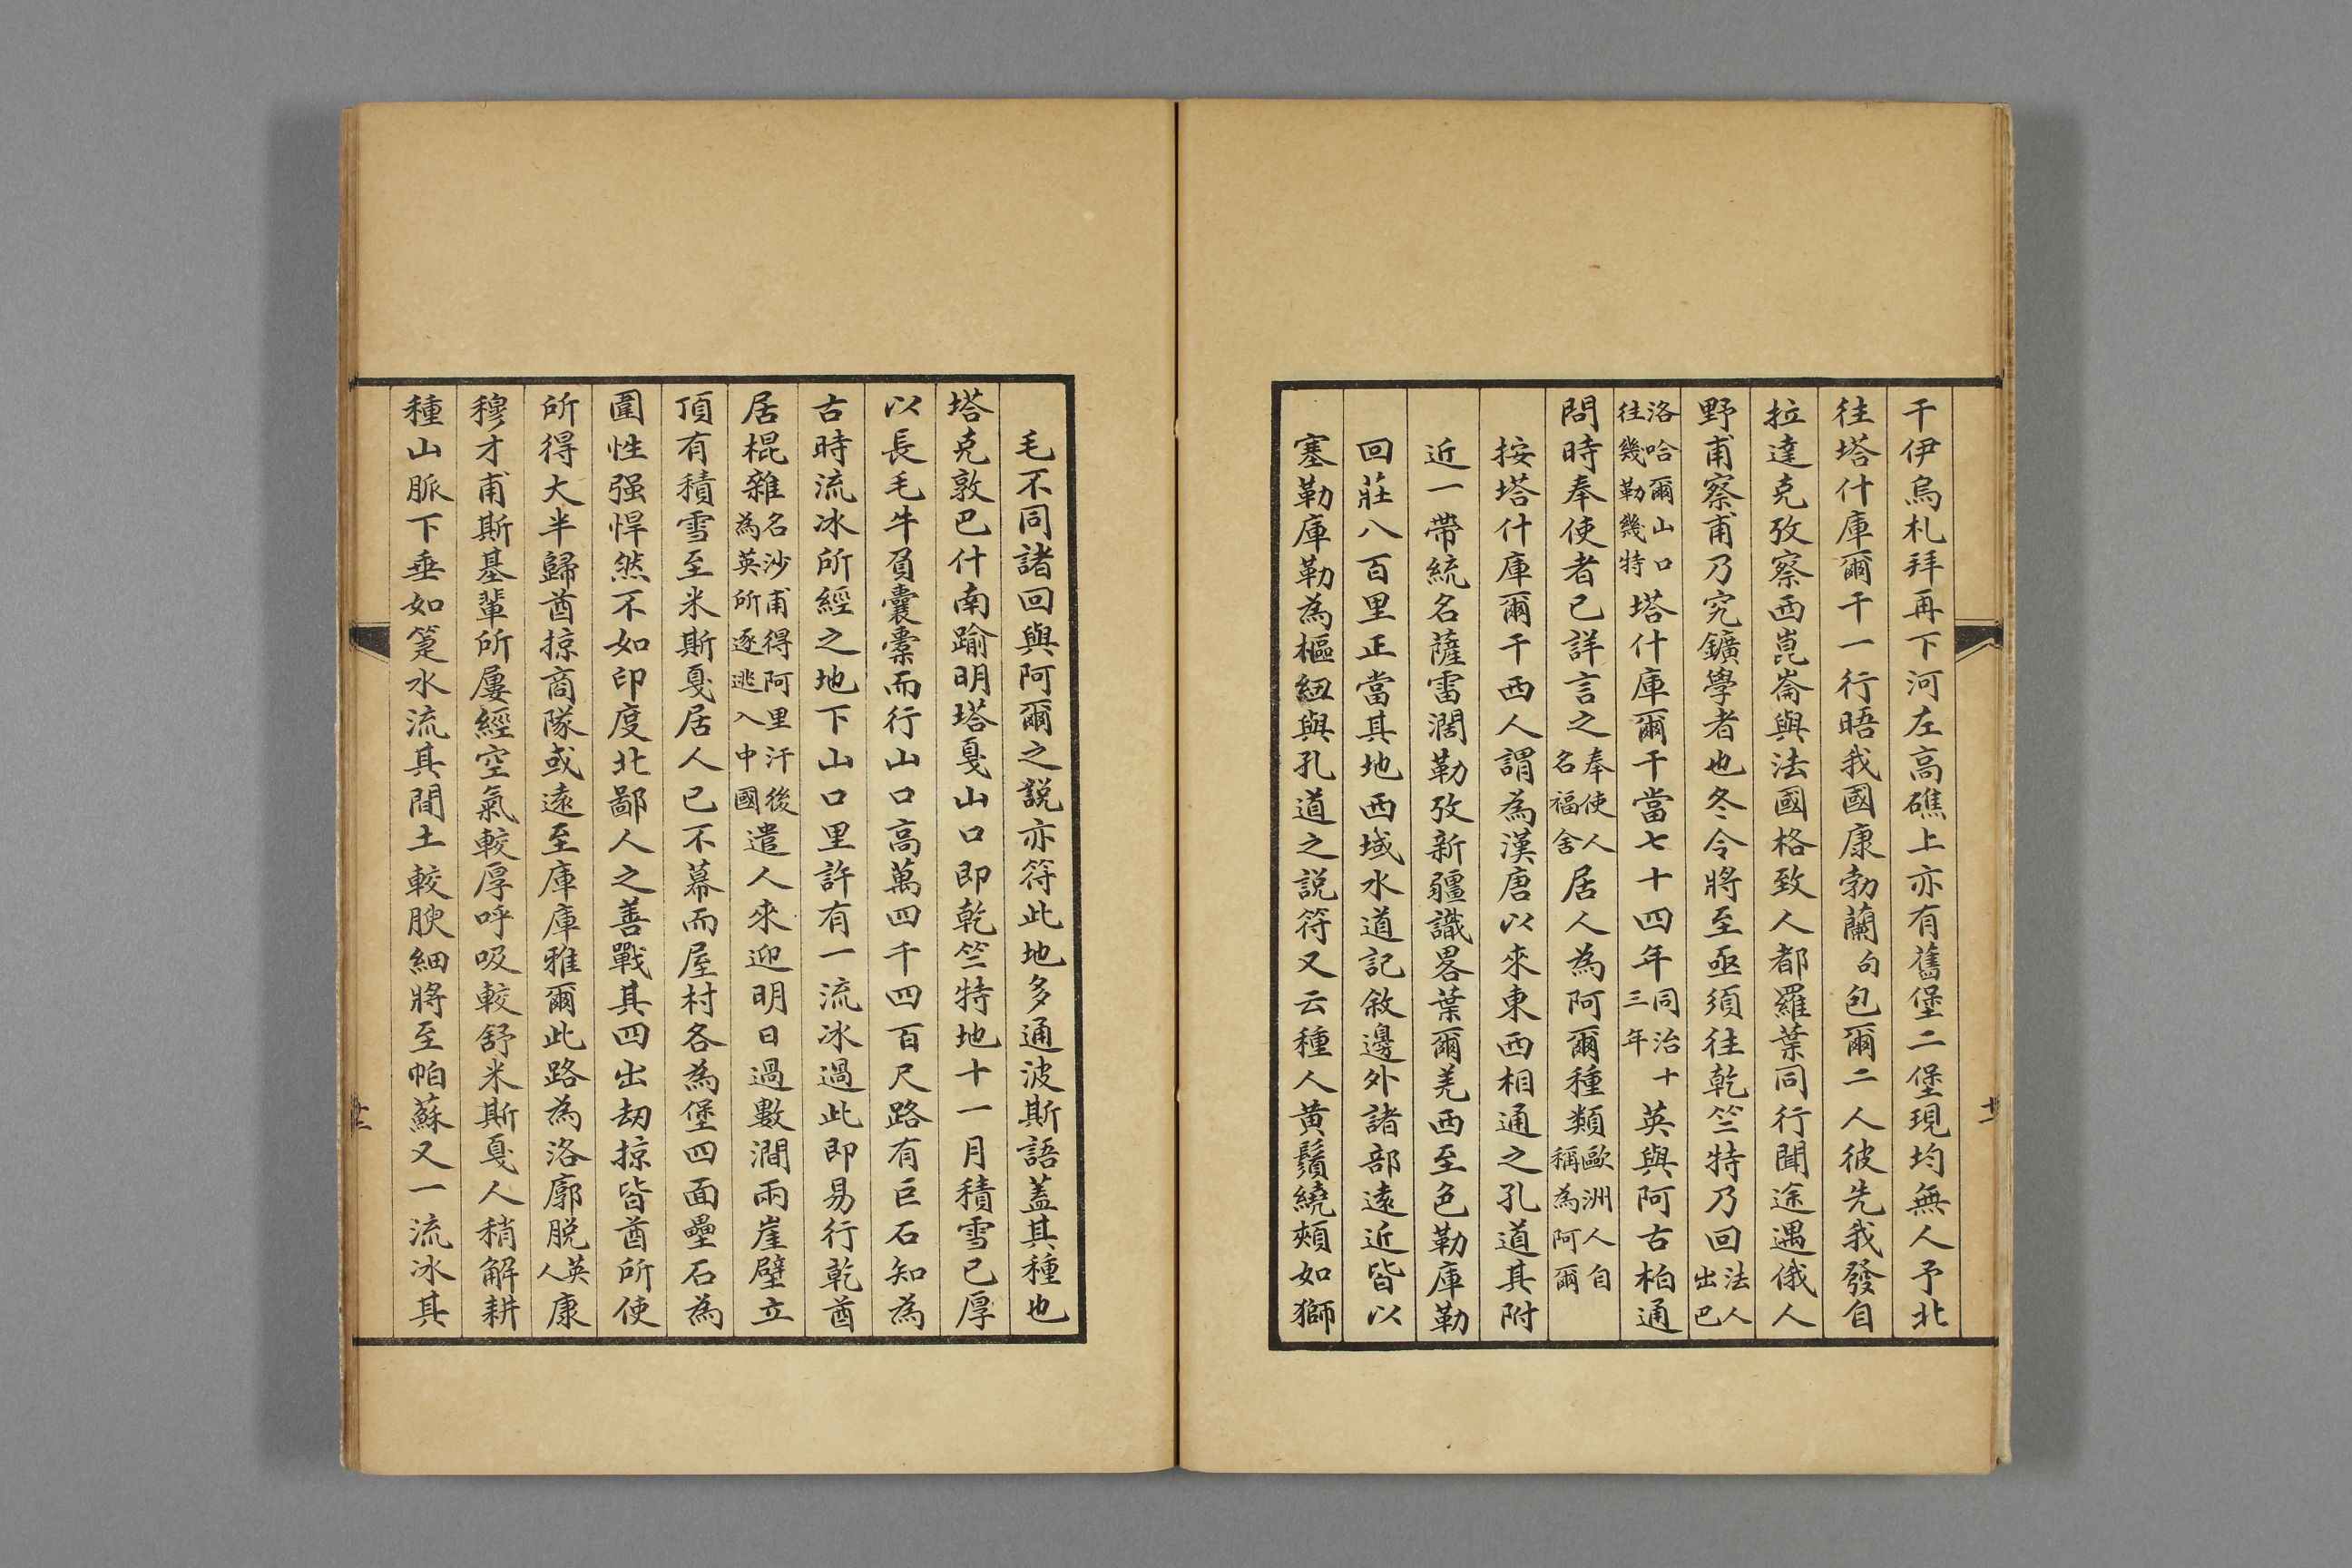 干伊烏札拜再下河左高礁上亦有舊堡二堡現均無人予北
往塔什庫爾干一行晤我國康勃蘭句包爾二人彼先我發自
拉達克攷察西崑崙與法國格致人都羅葉同行聞途遇俄人
野甫察甫乃究鑛學者也冬令將至亟須往乾竺特乃回法人出巴
洛哈爾山口往幾勒幾特塔什庫爾干當七十四年同治十三年英與阿古柏通
問時奉使者已詳言之奉使人名福舍居人為阿爾種類歐洲人自稱為阿爾
按塔什庫爾干西人謂為漢唐以來東西相通之孔道其附
近一帶統名薩雷濶勒攷新疆識畧葉爾羌西至色勒庫勒
回莊八百里正當其地西域水道記敘邊外諸部遠近皆以
塞勒庫勒為樞紐與孔道之說符又云種人黃鬚繞頰如獅
十一
毛不同諸回與阿爾之說亦符此地多通波斯語蓋其種也
塔克敦巴什南踰明塔戛山口即乾竺特地十一月積雪已厚
以長毛牛負囊橐而行山口高萬四千四百尺路有巨石知為
古時流冰所經之地下山口里許有一流冰過此即易行乾酋
居棍雜名沙甫得阿里汗後為英所逐逃入中國遣人來迎明日過數澗兩崖壁立
頂有積雪至米斯戛居人已不幕而屋村各為堡四面壘石為
圍性强悍然不如印度北鄙人之善戰其四出刧掠皆酋所使
所得大半歸酋掠商隊或遠至庫庫雅爾此路為洛廓脫英人康
穆才甫斯基輩所屢經空氣較厚呼吸較舒米斯戛人稍解耕
種山脈下垂如箑水流其間土較腴細將至帕蘇又一流冰其